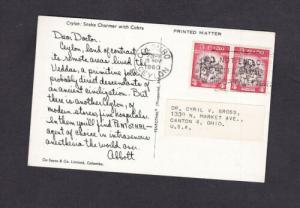 Ceylon: Snake Charmer with Cobra
PRINTED MATTER
Dear Doctor,
Ceylon, land of contrasts. In
its remote areas lived the
Veddas, a primitive folk,
probably direct descendants of
an ancient civilization. But
there is another Ceylon, of
modern stores, fine hospitals.
In them you'll find PENTOTHAL -
agent of choice in intravenous
anesthesia the world over.
Abbott
1960
CEYLON
DR. CYRIL V. GROSS,
1330 N. MARKET AVE.,
CANTON 4, OHIO.
U.S.A.
De Soysa & Co. Limited, Colombo.